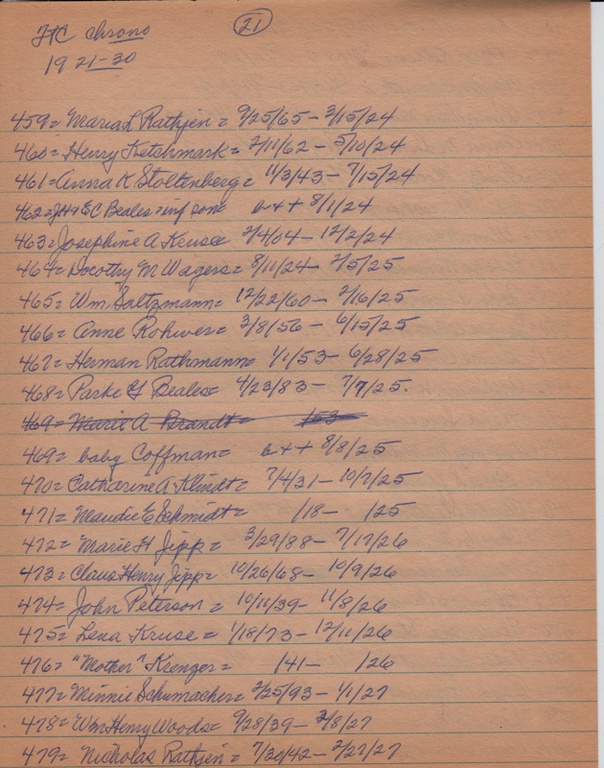 FTC chrono 21
1921-30
459= Maria L Rathjen = 9/25/65 - 3/15/24
460= Henry Ketchmark = 2/11/62 - 5/10/24
461= Anna K Stoltenberg = 11/3/43 - 7/15/24
462= JH & EC Beales = inf son b + + 8/1/24
463= Josephine A Kruse 2/4/04 - 12/2/24
464= Dorothy M Wagers = 8/11/24 - 2/5/25
465= Wm Saltzmann = 12/22/60 - 2/16/25
466= Anne Rohwer = 3/8/56 - 6/15/25
467= Herman Rathmann = 1/1/53 - 6/28/25
468= Parke G Beales = 4/23/83 - 7/7/25.
469= Marie A Brandt = /53
469= baby Coffman = b + + 8/8/25
470= Catharine A Klindt = 7/4/31 - 10/7/25
471= Maudie E Schmidt = /18 - /25
472= Marie H Jipp = 3/29/88 - 7/17/26
473= Claus Henry Jipp = 10/26/68 - 10/9/26
474= John Peterson = 10/11/39 - 11/8/26
475= Lena Kruse = 1/18/73 - 12/11/26
476= "Mother" Krenger = /41 - /26
477= Minnie Schumacher = 2/25/93 - 1/1/27
478= Wm Henry Woods = 9/28/39 - 2/8/27
479= Nicholas Rathjen = 7/30/42 - 2/27/27